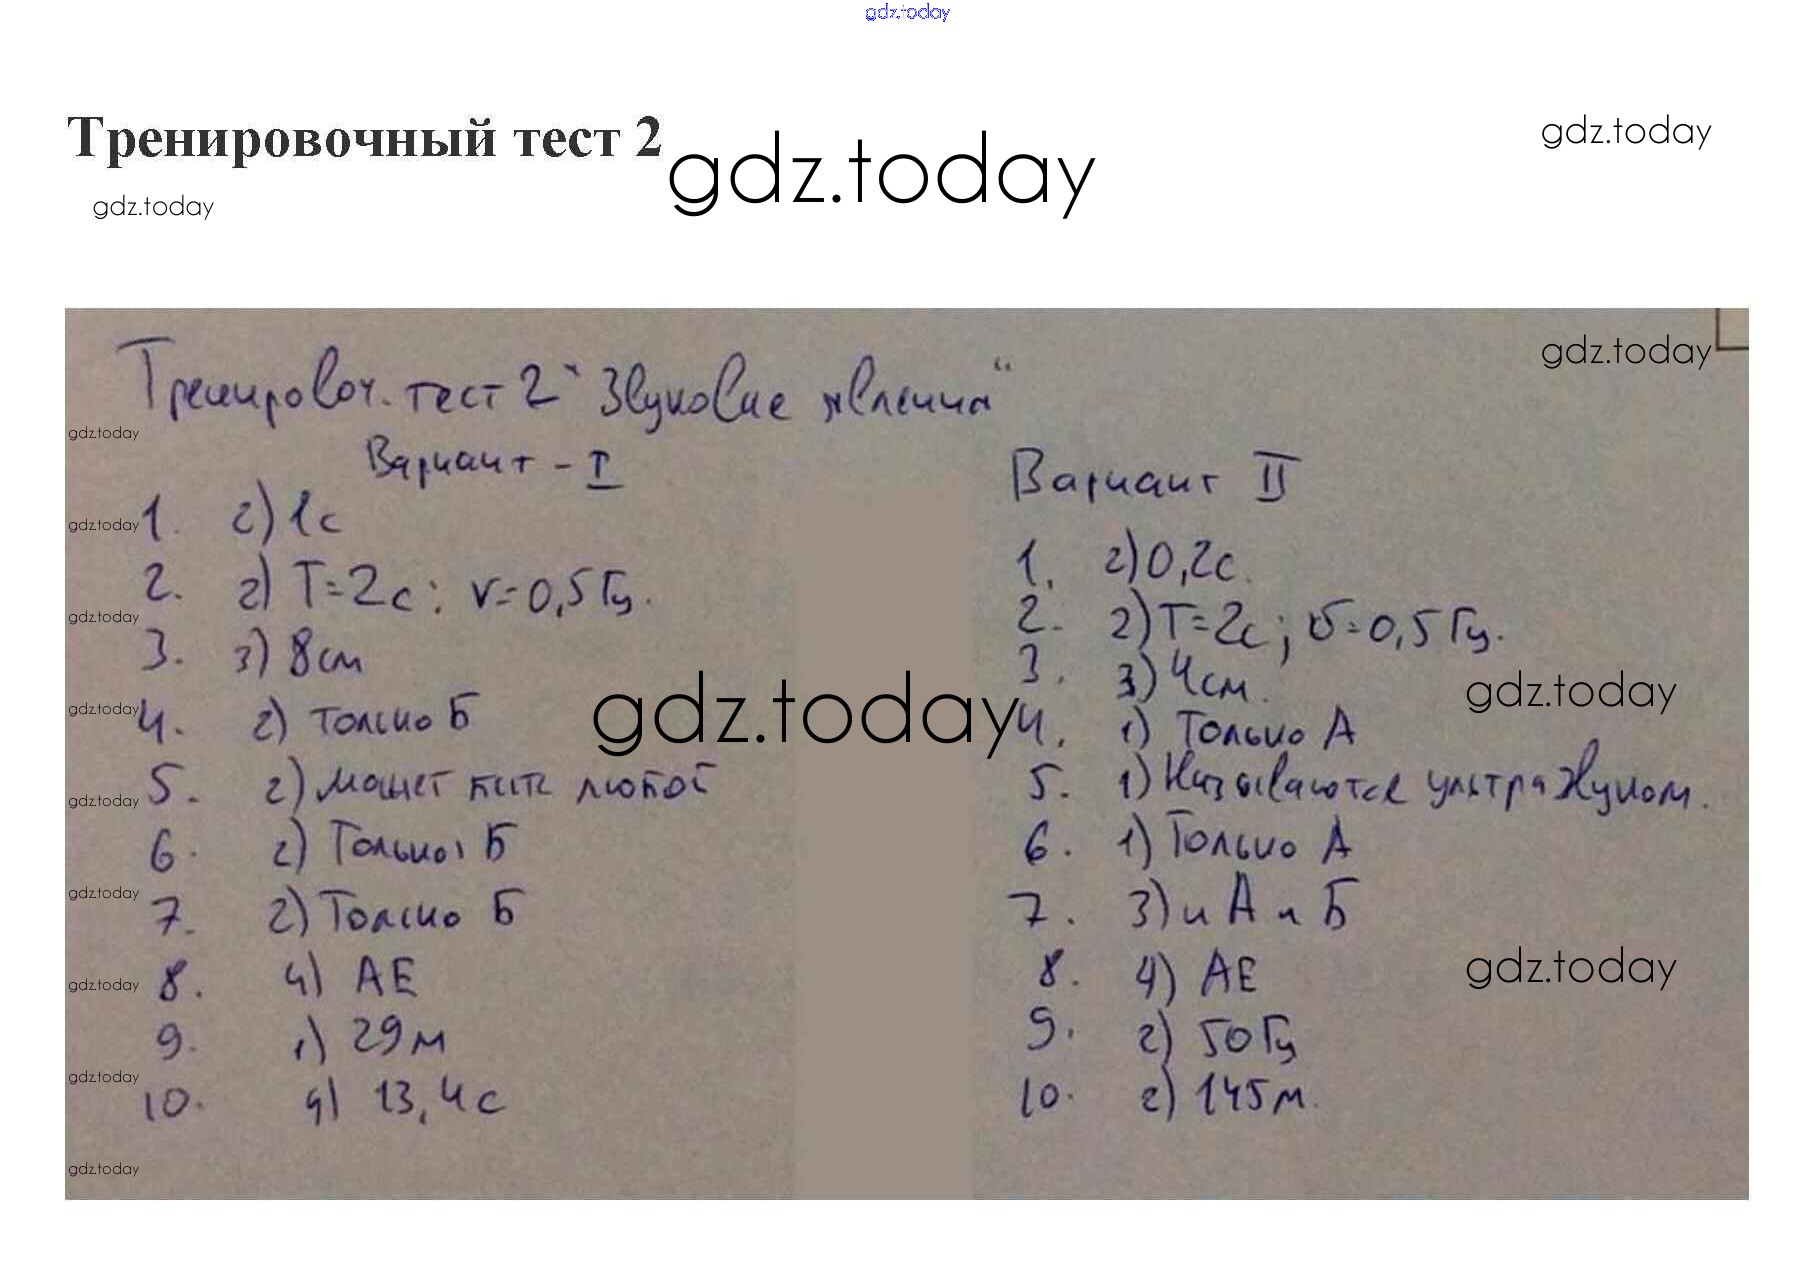 gdz.today
Тренировочный тест 2
gdz.today
gdz.today
gdz.today
gdz.today
Тренировоч. тест 2 "Звуковые явления"
gdz.today
Вариант - I
1. 2) 1с
gdz.today
2. 2) T=2с; ν=0,5Гц.
gdz.today
3. 3) 8см
4. 2) только Б
gdz.today
5. 2) может быть любой
gdz.today
6. 2) Только Б
7. 2) Только Б
gdz.today
8. 4) АЕ
gdz.today
9. 1) 29м
10. 4) 13,4с
gdz.today
gdz.today
gdz.today
Вариант II
1. 2) 0,2с.
2. 2) T=2с; υ=0,5Гц.
3. 3) 4см.
gdz.today
4. 1) Только А
5. 1) Называются ультразвуком.
6. 1) Только А
7. 3) и А и Б
8. 4) АЕ
gdz.today
9. 2) 50Гц
10. 2) 145м.